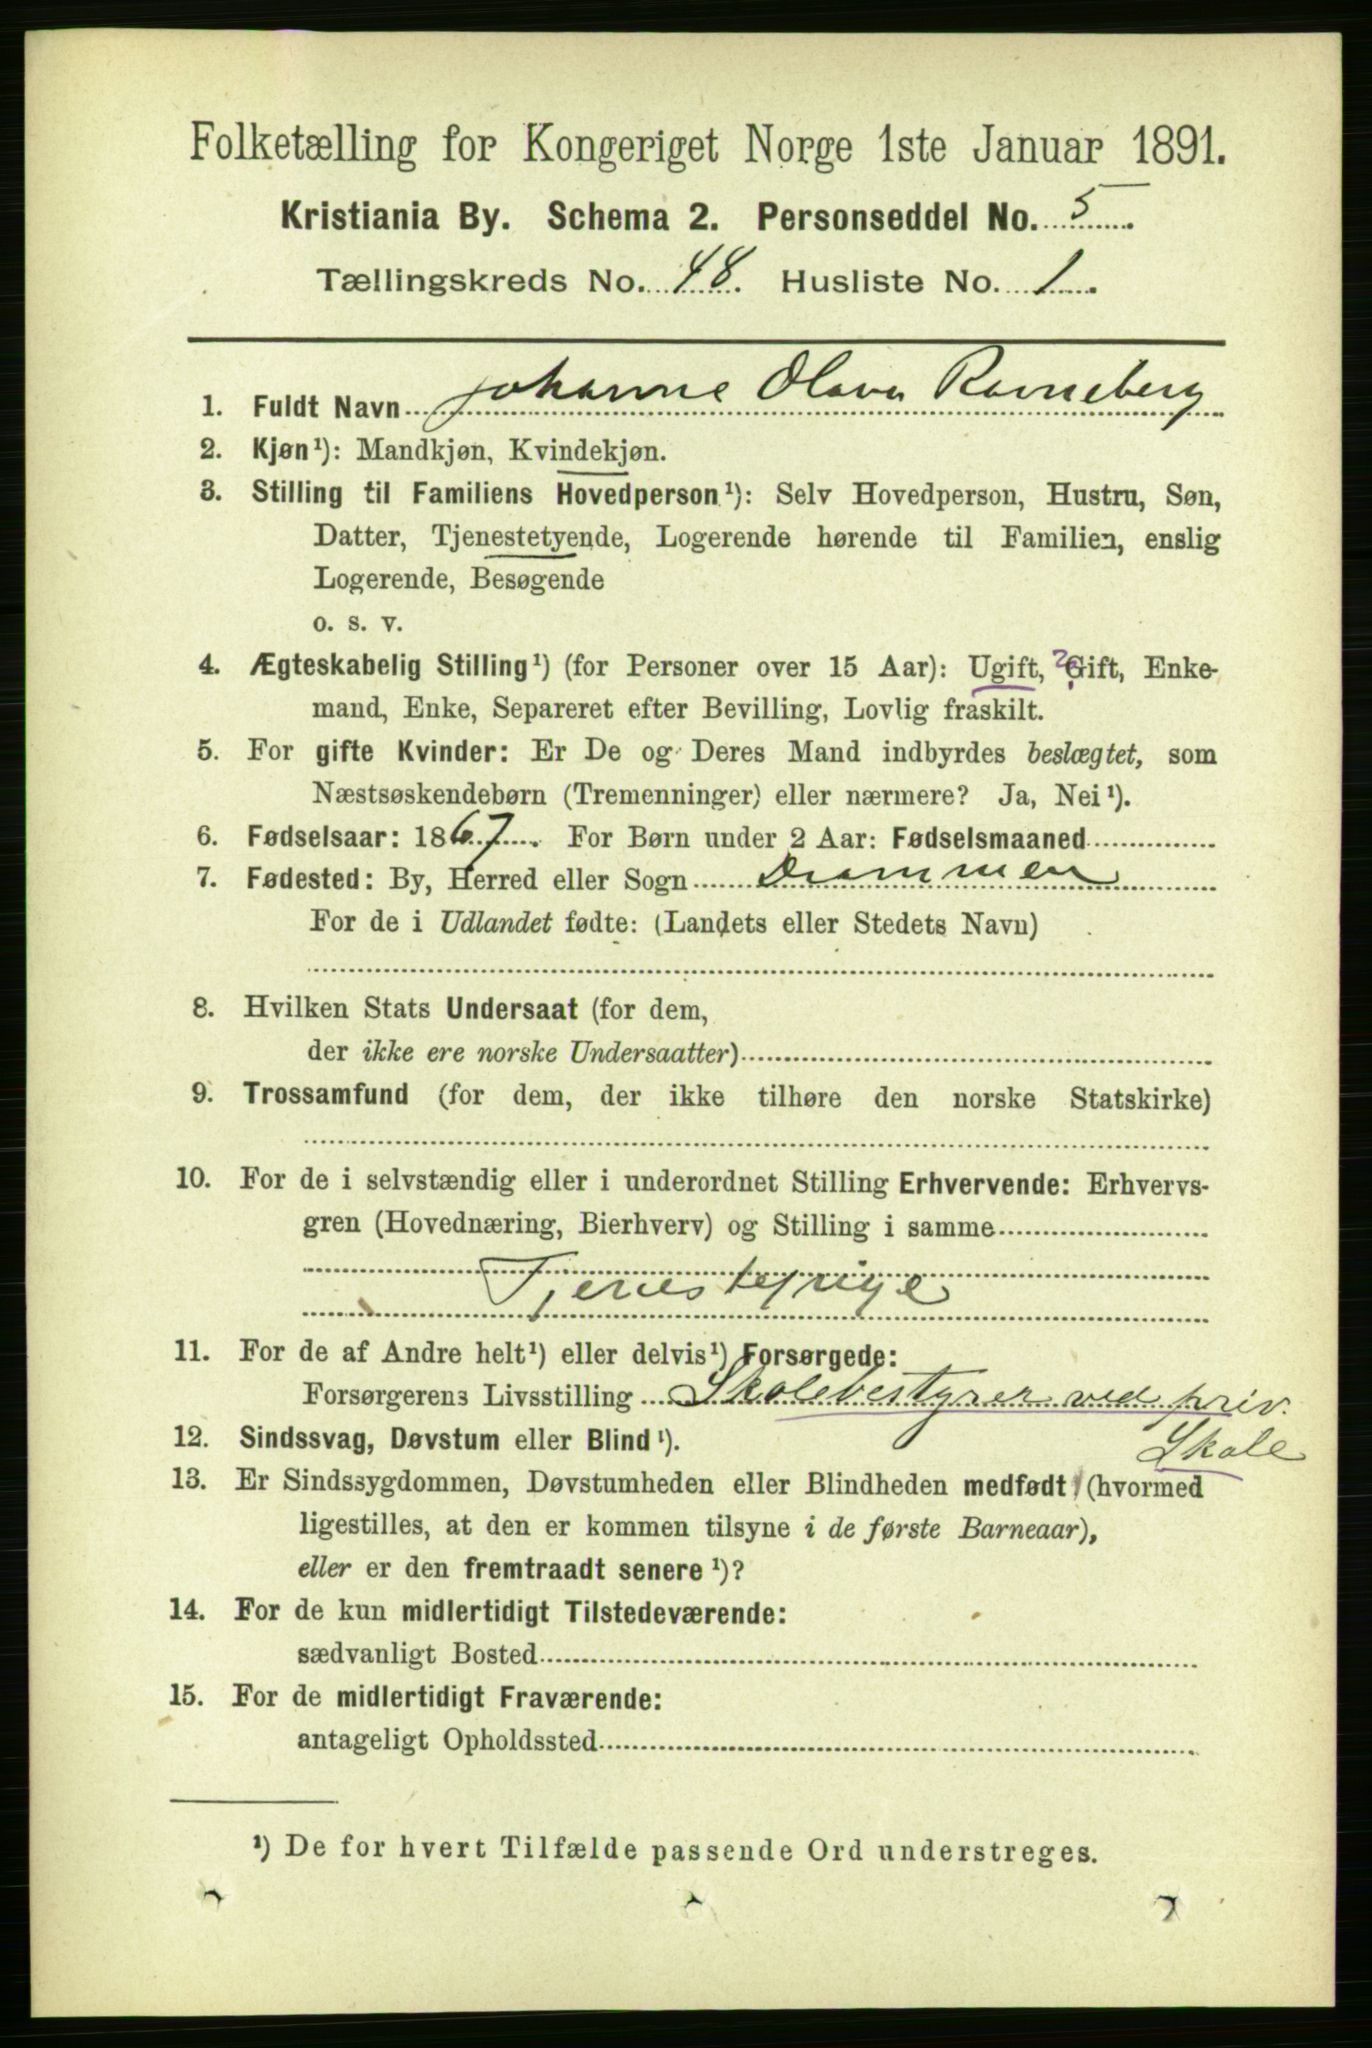 Folketælling for Kongeriget Norge 1ste Januar 1891.
Kristiania By. Schema 2. Personseddel No. 5
Tællingskreds No. 48. Husliste No. 1
1. Fuldt Navn Johanne Olava Ravneberg
2. Kjøn¹): Mandkjøn, Kvindekjøn.
3. Stilling til Familiens Hovedperson¹): Selv Hovedperson, Hustru, Søn,
Datter, Tjenestetyende, Logerende hørende til Familien, enslig
Logerende, Besøgende
o. s. v.
4. Ægteskabelig Stilling¹) (for Personer over 15 Aar): Ugift, ? Gift, Enke-
mand, Enke, Separeret efter Bevilling, Lovlig fraskilt.
5. For gifte Kvinder: Er De og Deres Mand indbyrdes beslægtet, som
Næstsøskendebørn (Tremenninger) eller nærmere? Ja, Nei¹).
6. Fødselsaar: 1867. For Børn under 2 Aar: Fødselsmaaned
7. Fødested: By, Herred eller Sogn Drammen
For de i Udlandet fødte: (Landets eller Stedets Navn)
8. Hvilken Stats Undersaat (for dem,
der ikke ere norske Undersaatter)
9. Trossamfund (for dem, der ikke tilhøre den norske Statskirke)
10. For de i selvstændig eller i underordnet Stilling Erhvervende: Erhvervs-
gren (Hovednæring, Bierhverv) og Stilling i samme
Tjenestepige
11. For de af Andre helt¹) eller delvis¹) Forsørgede:
Forsørgerens Livsstilling Skolebestyrer ved priv.
Skole
12. Sindssvag, Døvstum eller Blind¹).
13. Er Sindssygdommen, Døvstumheden eller Blindheden medfødt (hvormed
ligestilles, at den er kommen tilsyne i de første Barneaar),
eller er den fremtraadt senere¹)?
14. For de kun midlertidigt Tilstedeværende:
sædvanligt Bosted
15. For de midlertidigt Fraværende:
antageligt Opholdssted
¹) De for hvert Tilfælde passende Ord understreges.